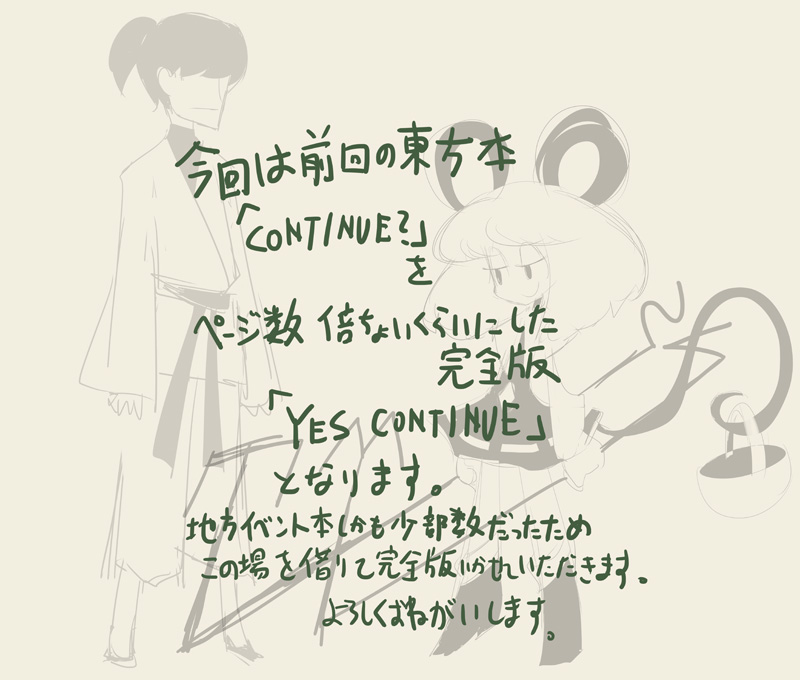 今回は前回の東方本
「CONTINUE?」
を
ページ数 倍ちょいくらいにした
完全版
「YES CONTINUE」
となります。
地方イベント本しかも少部数だったため
この場を借りて完全版いかせいただきます。
よろしくおねがいします。